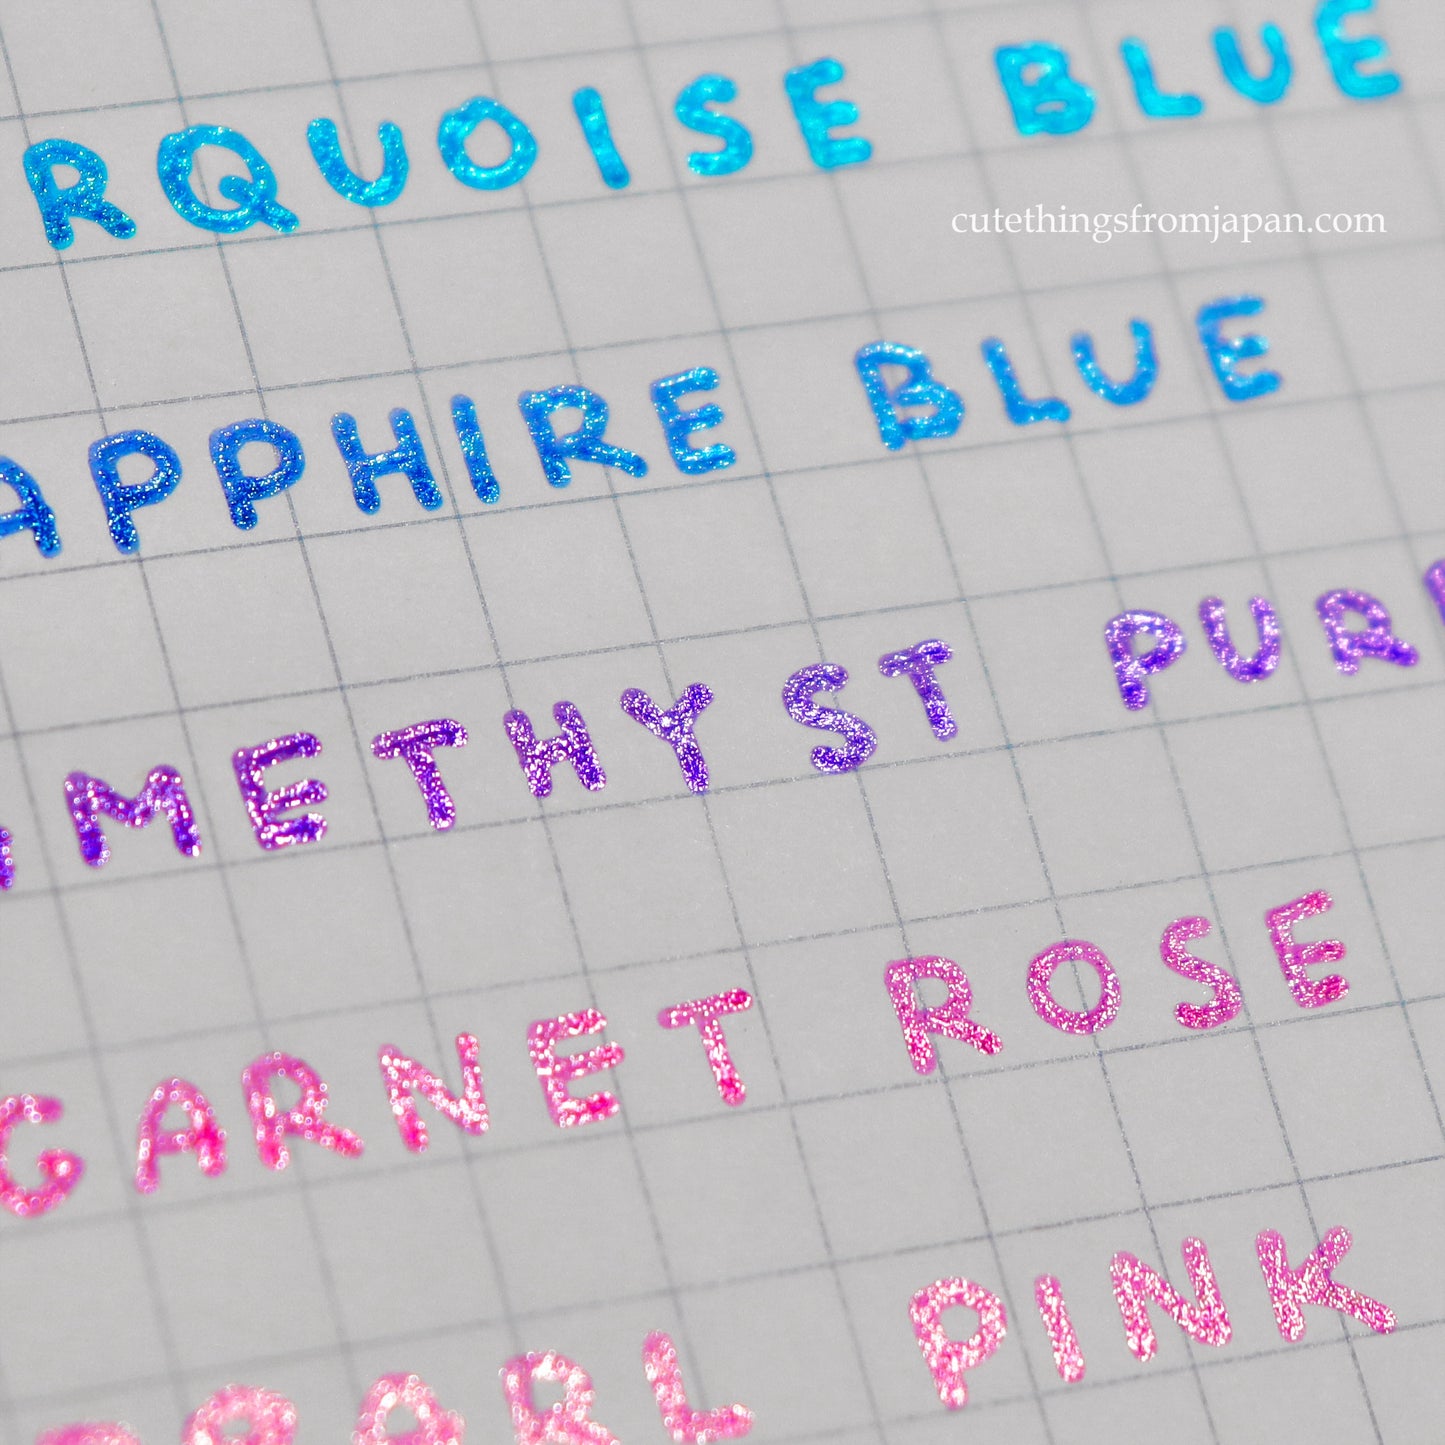 RQUOISE BLUE
cutethingsfromjapan.com
APPHIRE BLUE
AMETHYST PUR
GARNET ROSE
PEARL PINK